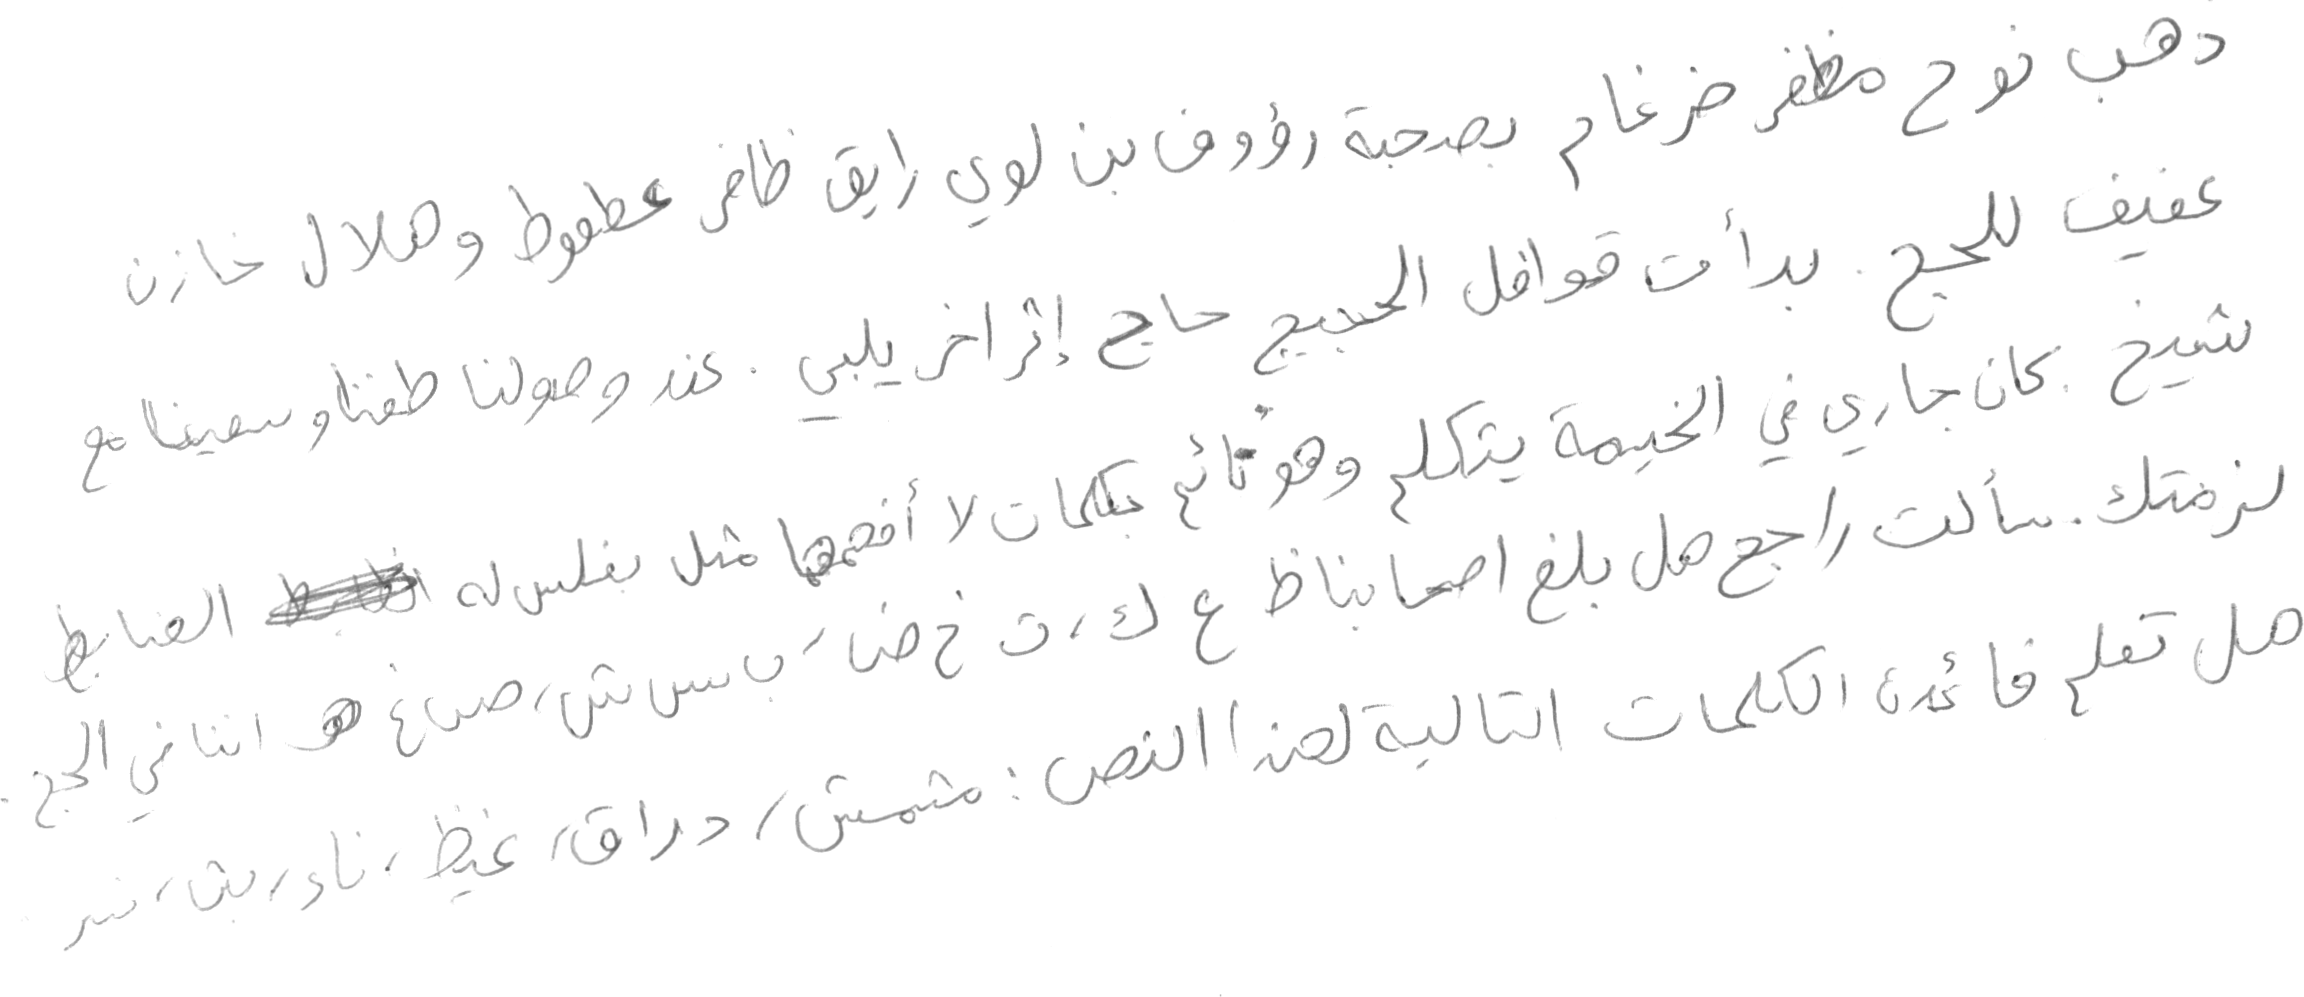 ذهب نوح مظفر ضرغام بصحبة رؤوف بن لوي رايق ظافر عطعوط وهلال خازن
عفيف للحج. بدأت قوافل الحجيج حاج إثر اخر يلبي. عند وصولنا طفنا وسعينا مع
شيخ. كان جاري في الخيمة يتكلم وهو نائم بكلمات لا أفهمها مثل بغلس له الضابط
لزمتك. سألت راجح هل بلغ اصحابنا ظ ع ك، ت خ ضا، ب س ش، ص غ هـ اننا في الحج.
هل تعلم فائدة الكلمات التالية لهذا النص: مشمش، دراق، غيظ، ناء، بث، نسر